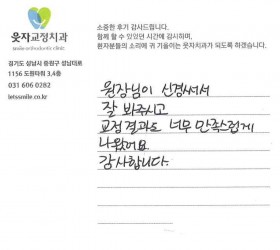 웃자교정치과
smile orthodontic clinic
경기도 성남시 중원구 성남대로
1156 도원타워 3,4층
031 606 0282
letssmile.co.kr
소중한 후기 감사드립니다.
함께 할 수 있었던 시간에 감사하며,
환자분들의 소리에 귀 기울이는 웃자치과가 되도록 하겠습니다.
원장님이 신경써서
잘 봐주시고
교정결과도 너무 만족스럽게
나왔어요
감사합니다.